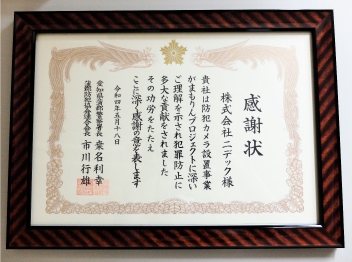 感謝状
株式会社ニデック様
貴社は防犯カメラ設置事業
がまもりんプロジェクトに深い
ご理解を示され犯罪防止に
多大な貢献をされました
その功労をたたえ
ここに深く感謝の意を表します
令和四年五月十八日
愛知県蒲郡警察署長 桒名利幸
蒲郡防犯協会連合会会長 市川行雄